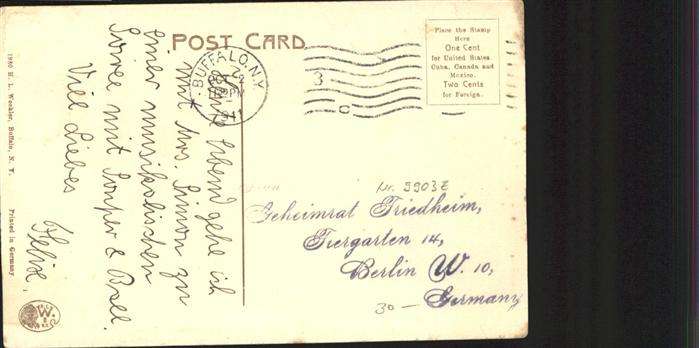 POST CARD
Place the Stamp
Here
One Cent
for United States,
Cuba, Canada and
Mexico.
Two Cents
for Foreign.
BUFFALO, N.Y.
1911
3
C
Heute Abend gehe ich
mit Mrs. Simon zu
einer musikalischen
Soiree mit Souper & Ball.
Viel Liebes
Nr. 5903E
Geheimrat Friedheim,
Tiergarten 14,
Berlin W. 10,
Germany
30 —
1980 H. L. Woehler, Buffalo, N. Y.
Printed in Germany
W.